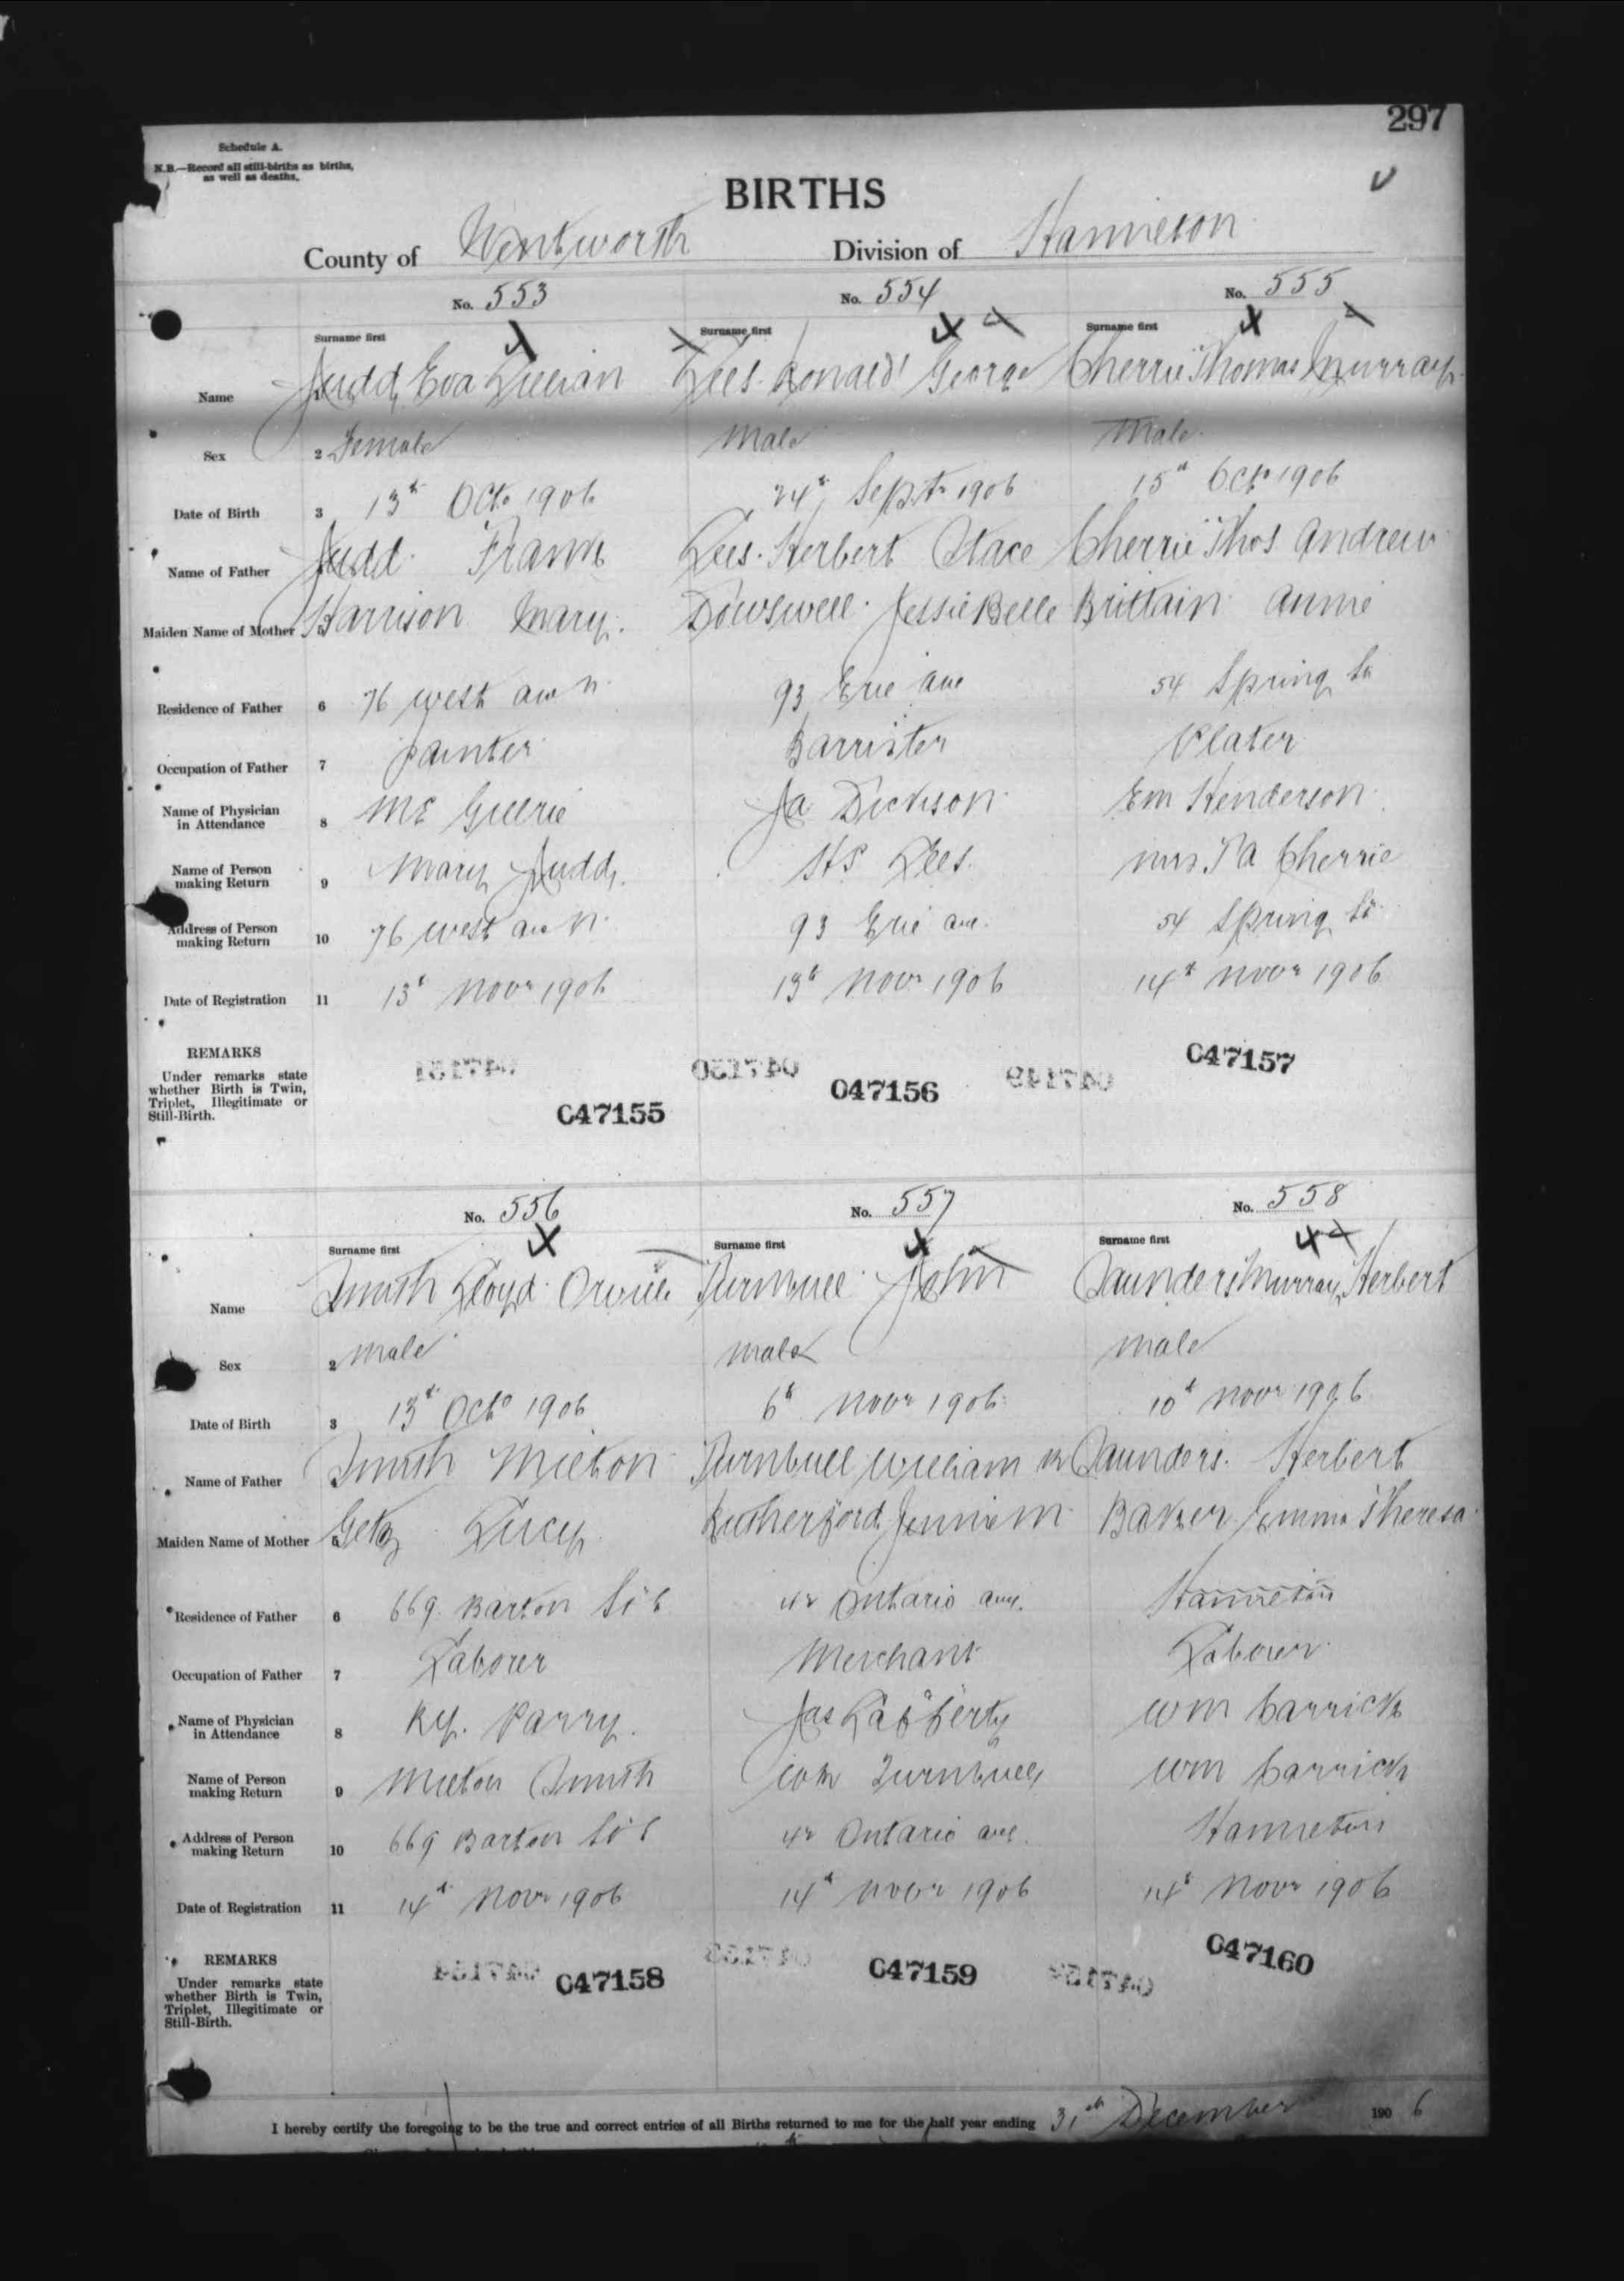 297
Schedule A.
N.B.—Record all still-births as births,
as well as deaths.
BIRTHS
County of Wentworth Division of Hamilton
No. 553 No. 554 No. 555
Surname first Surname first Surname first
Name Judd, Eva Lillian Lees. Ronald George Cherrie Thomas Murray
Sex 2 Female Male Male
Date of Birth 3 13th Oct. 1906 24th Sept. 1906 15th Oct. 1906
Name of Father Judd. Frank Lees. Herbert Stace Cherrie Thos. Andrew
Maiden Name of Mother 5 Harrison Mary. Dowswell. Jessie Belle Brittain Annie
Residence of Father 6 76 West Ave N. 93 Erie Ave 54 Spring St
Occupation of Father 7 Painter Barrister Plater
Name of Physician
in Attendance 8 Mc Gillrie Ja Dickson Em Henderson
Name of Person
making Return 9 Mary Judd. HS Lees. Mrs. T A Cherrie
Address of Person
making Return 10 76 West Ave N. 93 Erie Ave. 54 Spring St.
Date of Registration 11 13th Novr 1906 13th Novr 1906 14th Novr 1906
REMARKS
Under remarks state
whether Birth is Twin,
Triplet, Illegitimate or
Still-Birth.
047151 047150 047149
047155 047156 047157
No. 556 No. 557 No. 558
Surname first Surname first Surname first
Name Smith Lloyd. Orville Turnbull John Saunders Murray Herbert
Sex 2 Male Male Male
Date of Birth 3 13th Oct. 1906 6th Novr 1906 10th Novr 1906
Name of Father Smith Milton Turnbull William Saunders. Herbert
Maiden Name of Mother 5 Getz Lucy Rutherford Jennie M Baker Emma Theresa
Residence of Father 6 669 Barton St E 42 Ontario Ave. Hamilton
Occupation of Father 7 Laborer Merchant Laborer
Name of Physician
in Attendance 8 Ry. Parry. Jas Lafferty Wm Carrick
Name of Person
making Return 9 Milton Smith Wm Turnbull Wm Carrick
Address of Person
making Return 10 669 Barton St E 42 Ontario Ave. Hamilton
Date of Registration 11 14th Novr 1906 14th Novr 1906 14th Novr 1906
REMARKS
Under remarks state
whether Birth is Twin,
Triplet, Illegitimate or
Still-Birth.
047154 047153 047152
047158 047159 047160
I hereby certify the foregoing to be the true and correct entries of all Births returned to me for the half year ending 31st December 1906